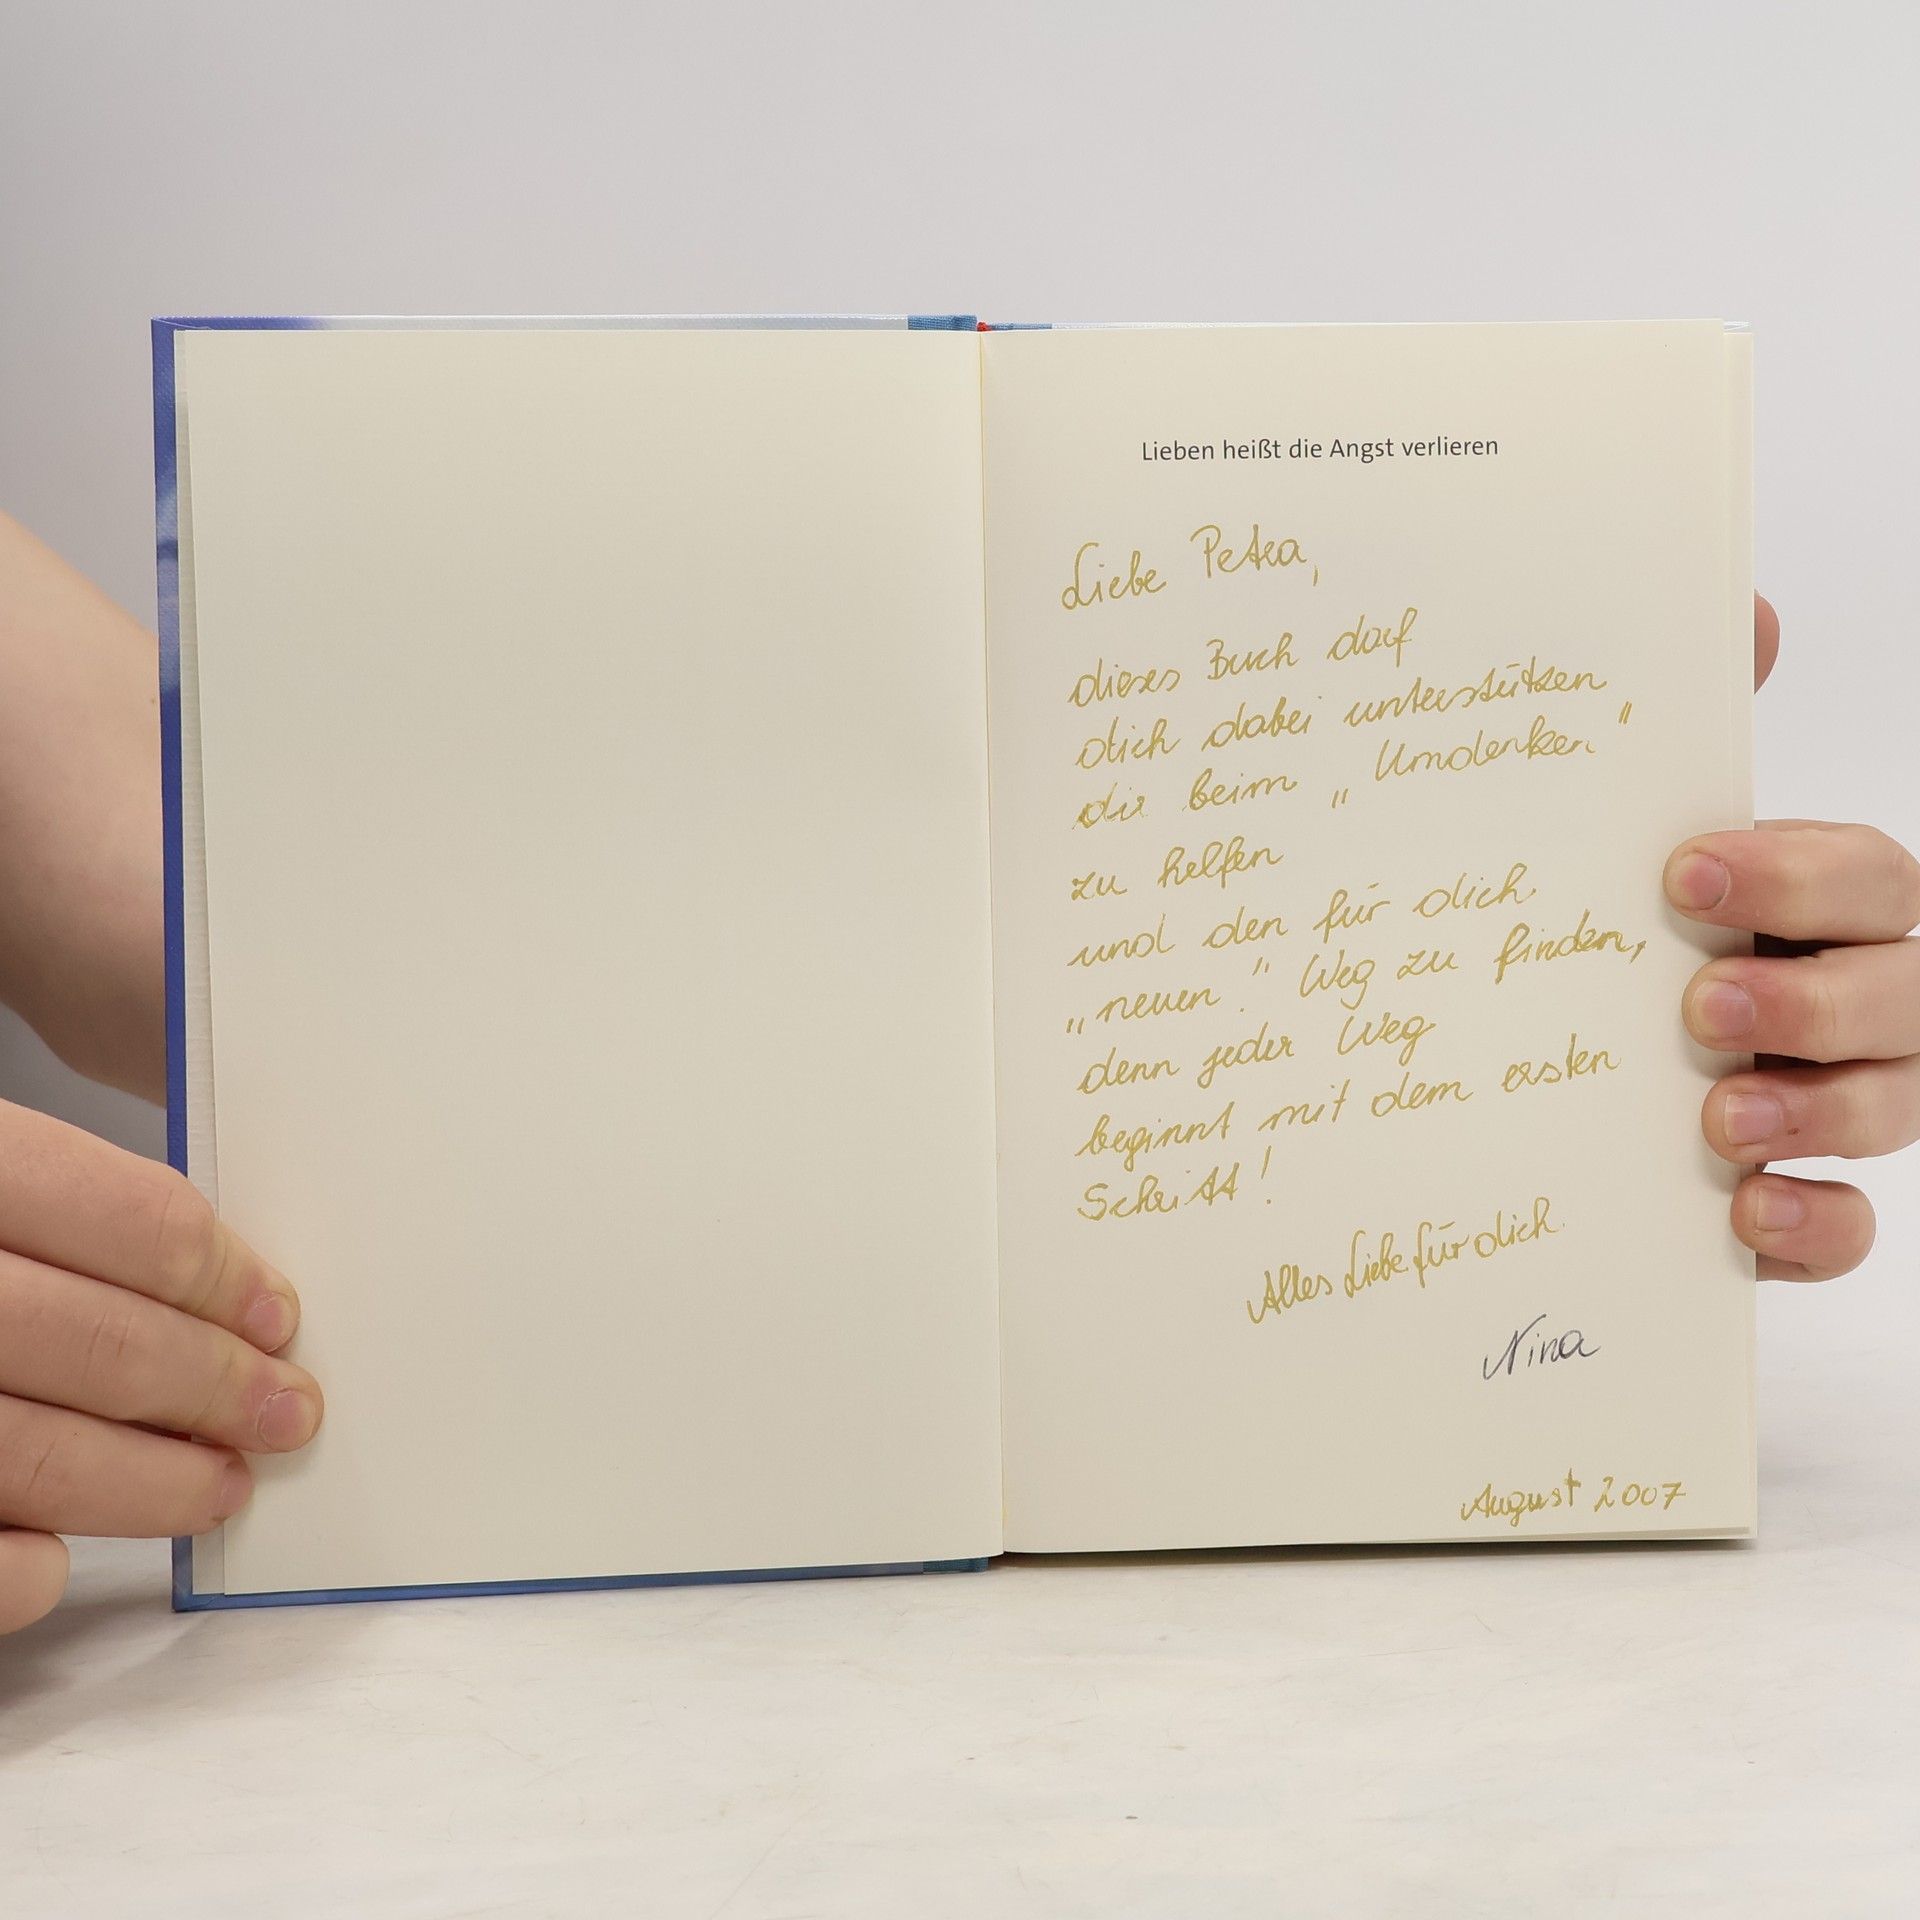 Lieben heißt die Angst verlieren
Liebe Petra,
dieses Buch darf
dich dabei unterstützen
dir beim „Umdenken"
zu helfen
und den für dich
„neuen." Weg zu finden,
denn jeder Weg
beginnt mit dem ersten
Schritt!
Alles Liebe für dich.
Nina
August 2007